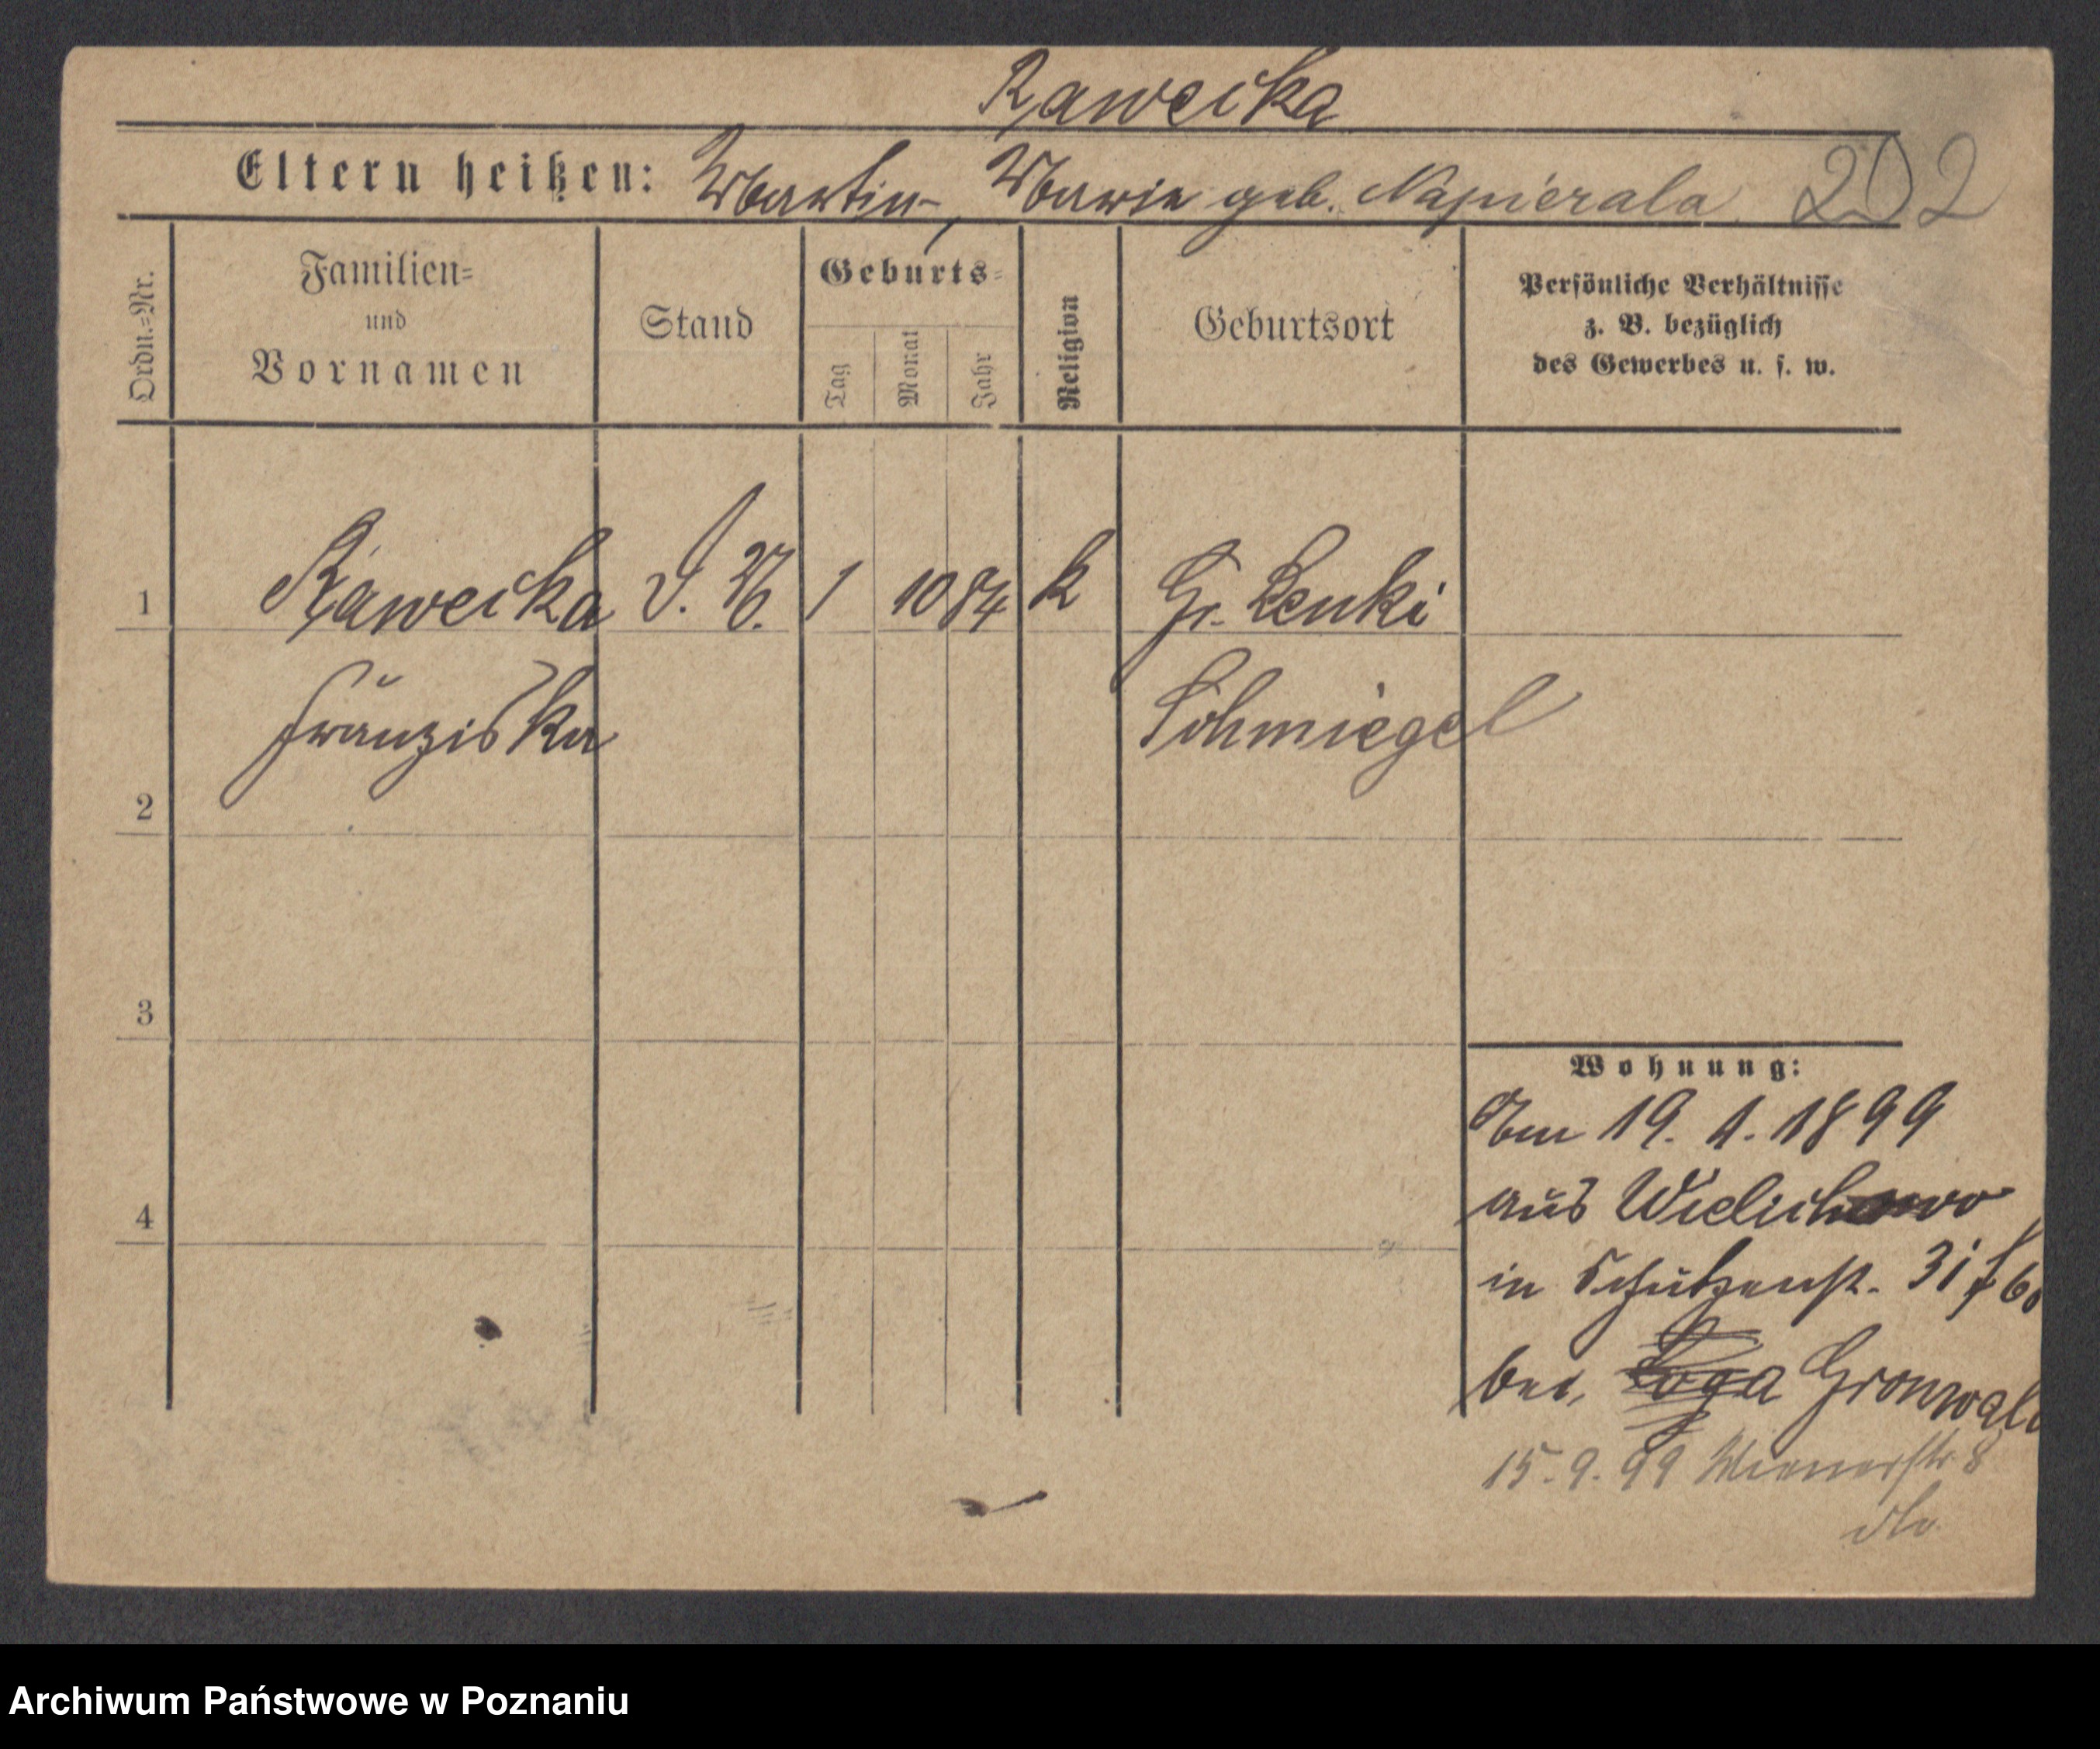 Rawecka
Eltern heißen: Martin, Marie geb. Napierala 202
Ordn.=Nr.
Familien=
und
Vornamen
Stand
Geburts=
Tag
Monat
Jahr
Religion
Geburtsort
Persönliche Verhältnisse
z. B. bezüglich
des Gewerbes u. s. w.
1 Rawecka 1 10 84 k Gr. Lenki
Franziska Schmiegel
2
3
4
Wohnung:
Am 19. 1. 1899
aus Wielichowo
in Schützenst. 31
bei Gronwald
15. 9. 99 Wienerstr 8
Archiwum Państwowe w Poznaniu